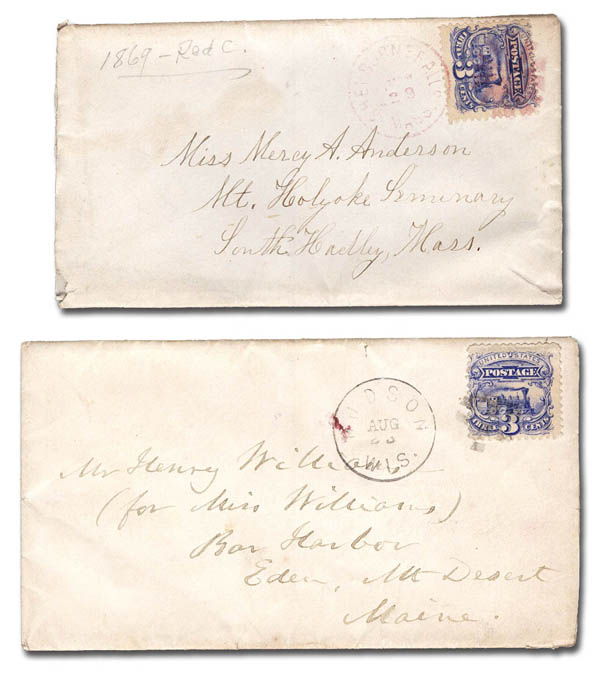 1869 - Red C.
UNITED STATES
POSTAGE
3
THREE CENTS
Miss Mercy A. Anderson
Mt. Holyoke Seminary
South Hadley, Mass.
UNITED STATES
POSTAGE
3
THREE CENTS
HUDSON
AUG
WIS.
Mr Henry Williams
(for Miss Williams)
Bar Harbor
Eden, Mt Desert
Maine.